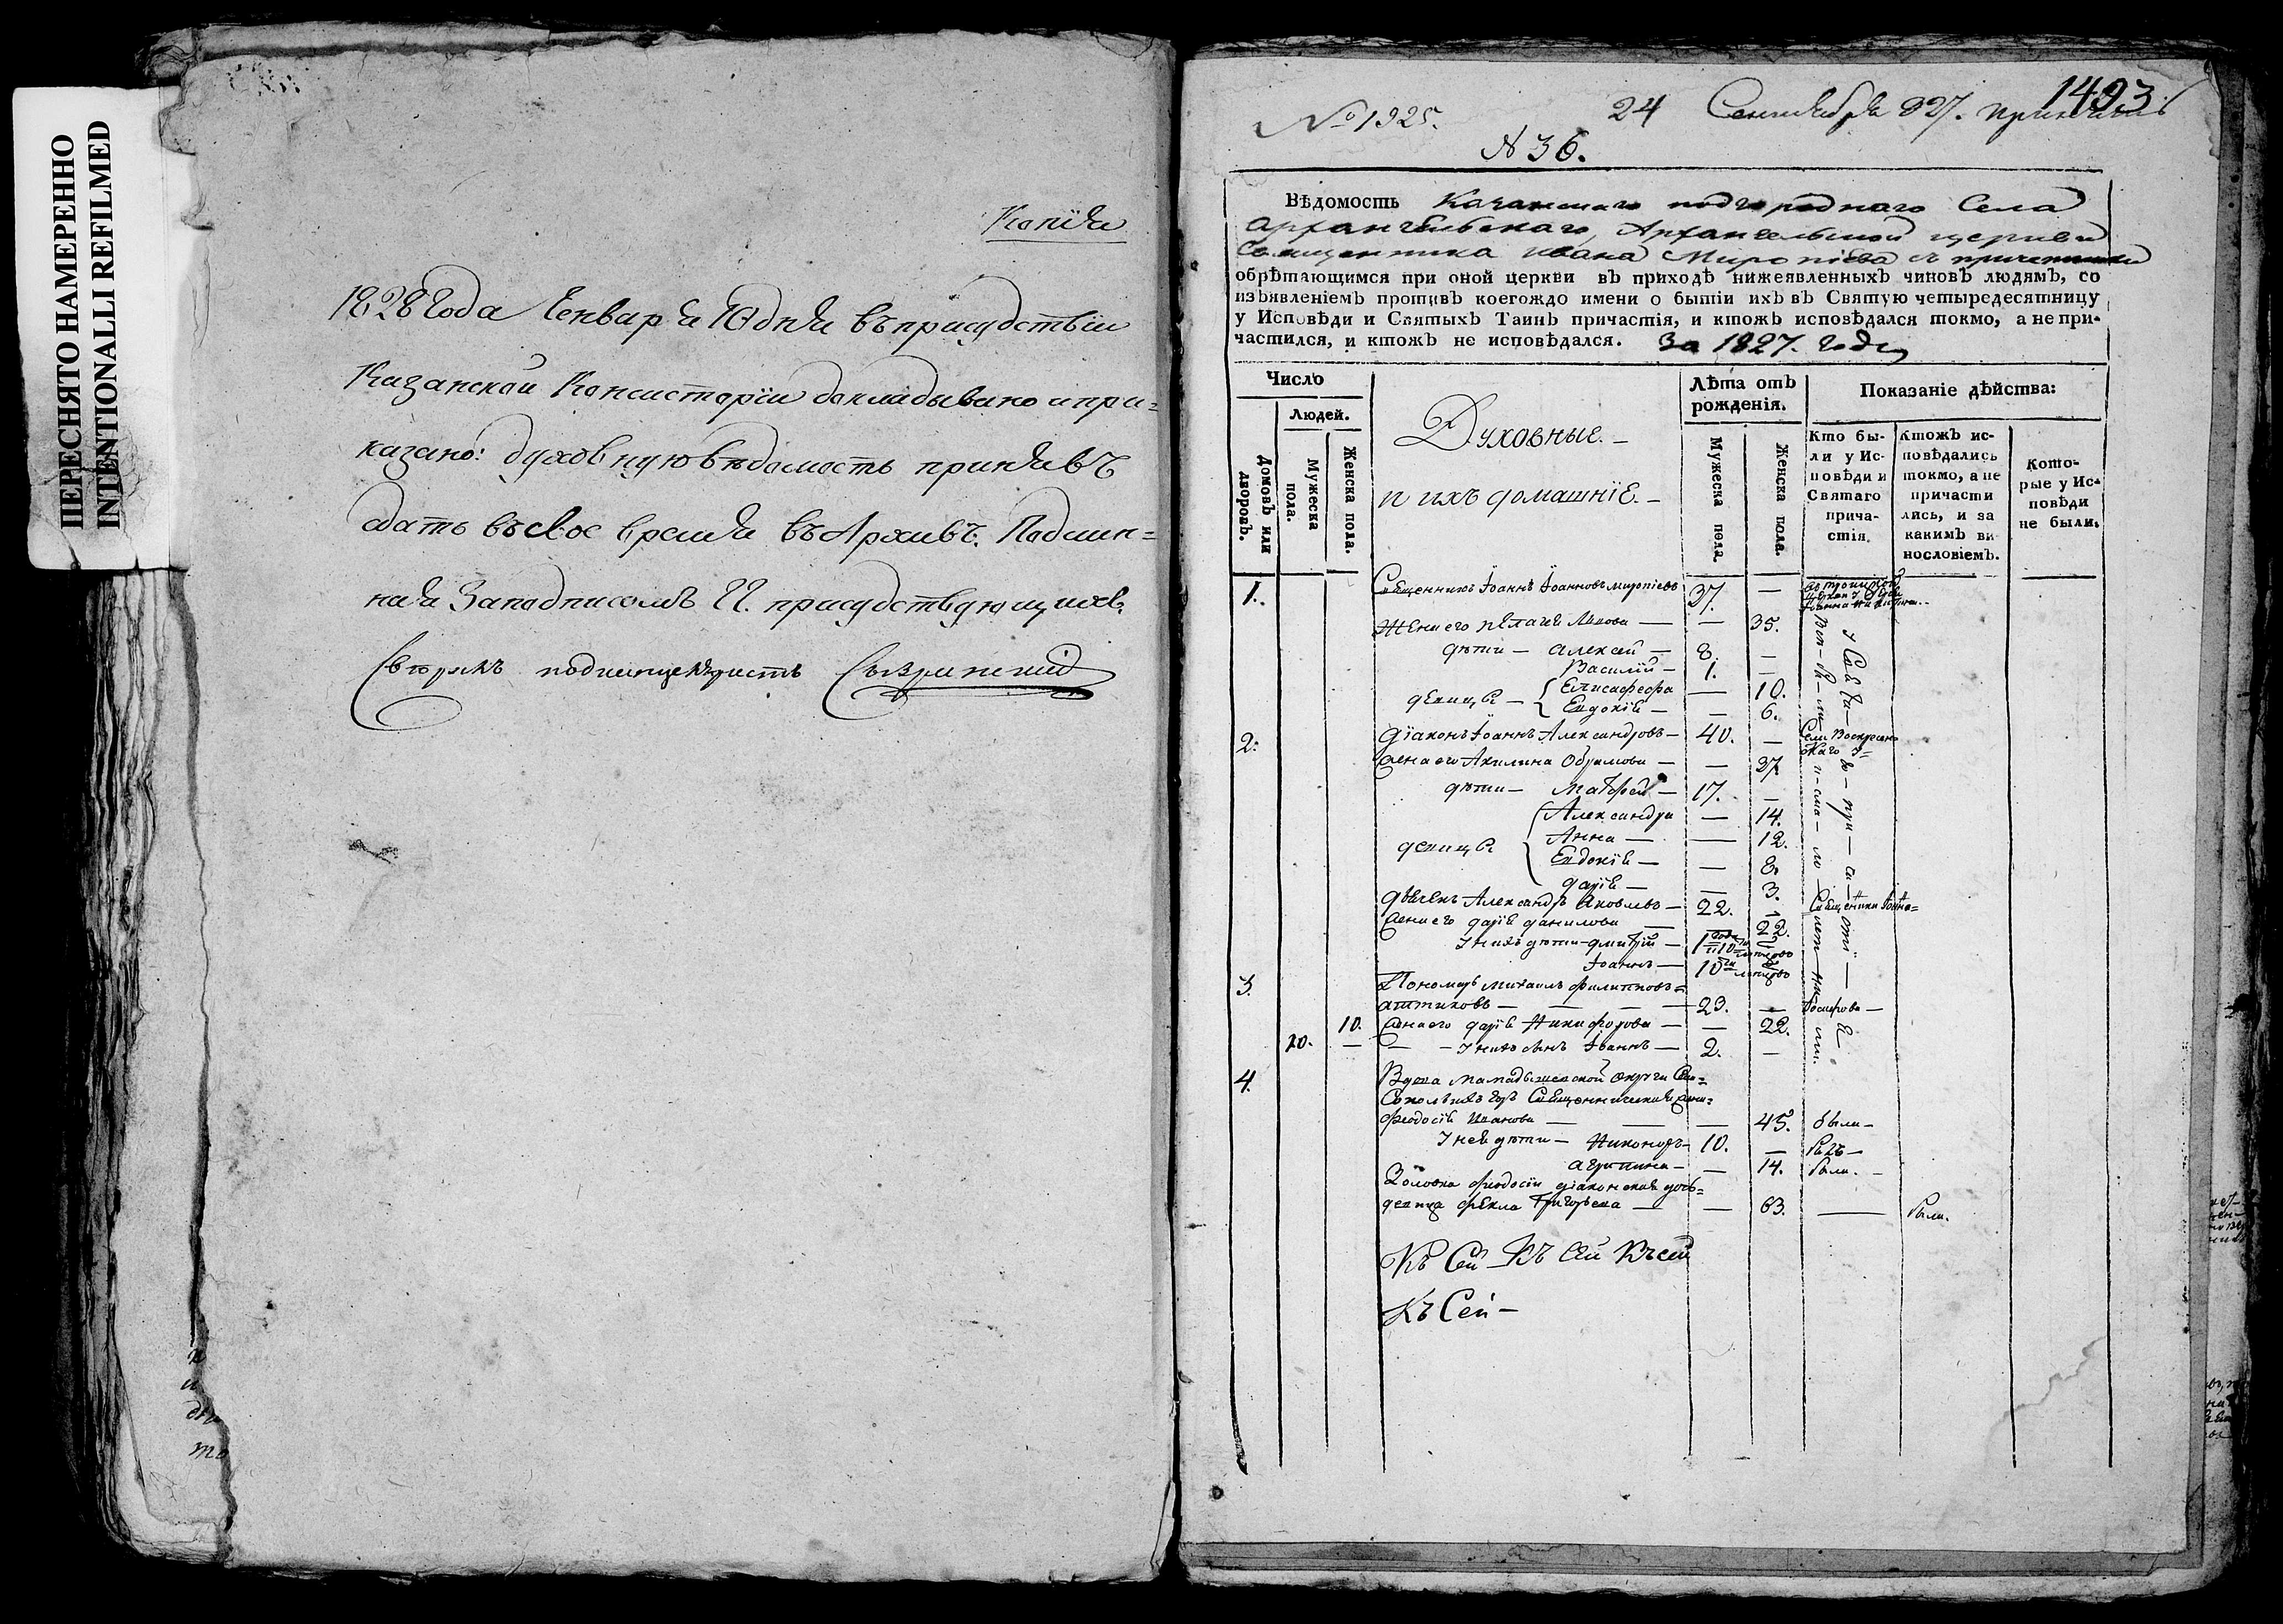 ПЕРЕСНЯТО НАМЕРЕННО
INTENTIONALLI REFILMED
Копія
1828 Года Генваря 10 дня въ присудствіи
Казанской Консисторіи докладывано и при=
казано: духовную вѣдомость принявъ
сдать въ свое время въ Архивъ. Подлин=
ная за подписомъ Гг. присудствующихъ.
Съ вѣрилъ подканцеляристъ
№ 1925.
24 Сентября 827. принята
1493
№ 36.
Вѣдомость Казанскаго подгороднаго Села
Архангельскаго, Архангельской церкви
Священника Ивана Миропіева съ причетники
обрѣтающимся при оной церкви въ приходѣ нижеявленныхъ чиновъ людямъ, со
изъявленіемъ противъ коегождо имени о бытіи ихъ въ Святую четыредесятницу
у Исповѣди и Святыхъ Таинъ причастія, и ктожъ исповѣдался токмо, а не при-
частился, и ктожъ не исповѣдался. За 1827. годъ
Число
Людей.
Домовъ или дворовъ.
Мужеска пола.
Женска пола.
Духовные.
и ихъ домашніе.
Лѣта отъ рожденія.
Мужеска пола.
Женска пола.
Показаніе дѣйства:
Кто бы-
ли у Ис-
повѣди и
Святаго
прича-
стія.
Ктожъ ис-
повѣдались
токмо, а не
причасти
лись, и за
какимъ ви
нословіемъ.
Кото-
рые у Ис-
повѣди
не были.
1. Священникъ Іоаннъ Іоанновъ Миропіевъ 37. —
Жена его Пелагія — — 35.
дѣти — Алексей — 8. —
Василій — 1. —
девицы — Елисаветa — 10.
Евдокія — — 6.
2. Діаконъ Іоаннъ Александровъ — 40. — Села Воскресен=
скаго
Жена его Акилина — — 37.
дѣти — Матфей — 17. —
девицы Александра — 14.
Анна — — 12.
Евдокія — — 8.
Дарія — — 3.
Дьячекъ Александръ Яковлевъ — 22. — Священника Іоанна=
Жена его Дарія Данилова — 22.
У нихъ дѣти — Дмитрій —
Іоаннъ —
3. Пономарь Михаилъ Филипповъ=
— 23. —
10. Жена его Дарія Никифорова — — 22.
10. — У нихъ сынъ Іоаннъ — 2. —
4. Вдова Мамадышской округи Села=
Сокольихъ горъ Священническая жена=
Феодосія Иванова — — 45. были —
У ней дѣти — Никоноръ — 10. — былъ —
Агрипина — — 14. была. —
Золовка Феодосіи діаконская дочь=
девица Фекла Григорьева — — 63. — была.
Къ Сей Къ Сей Къ сей
Къ Сей —